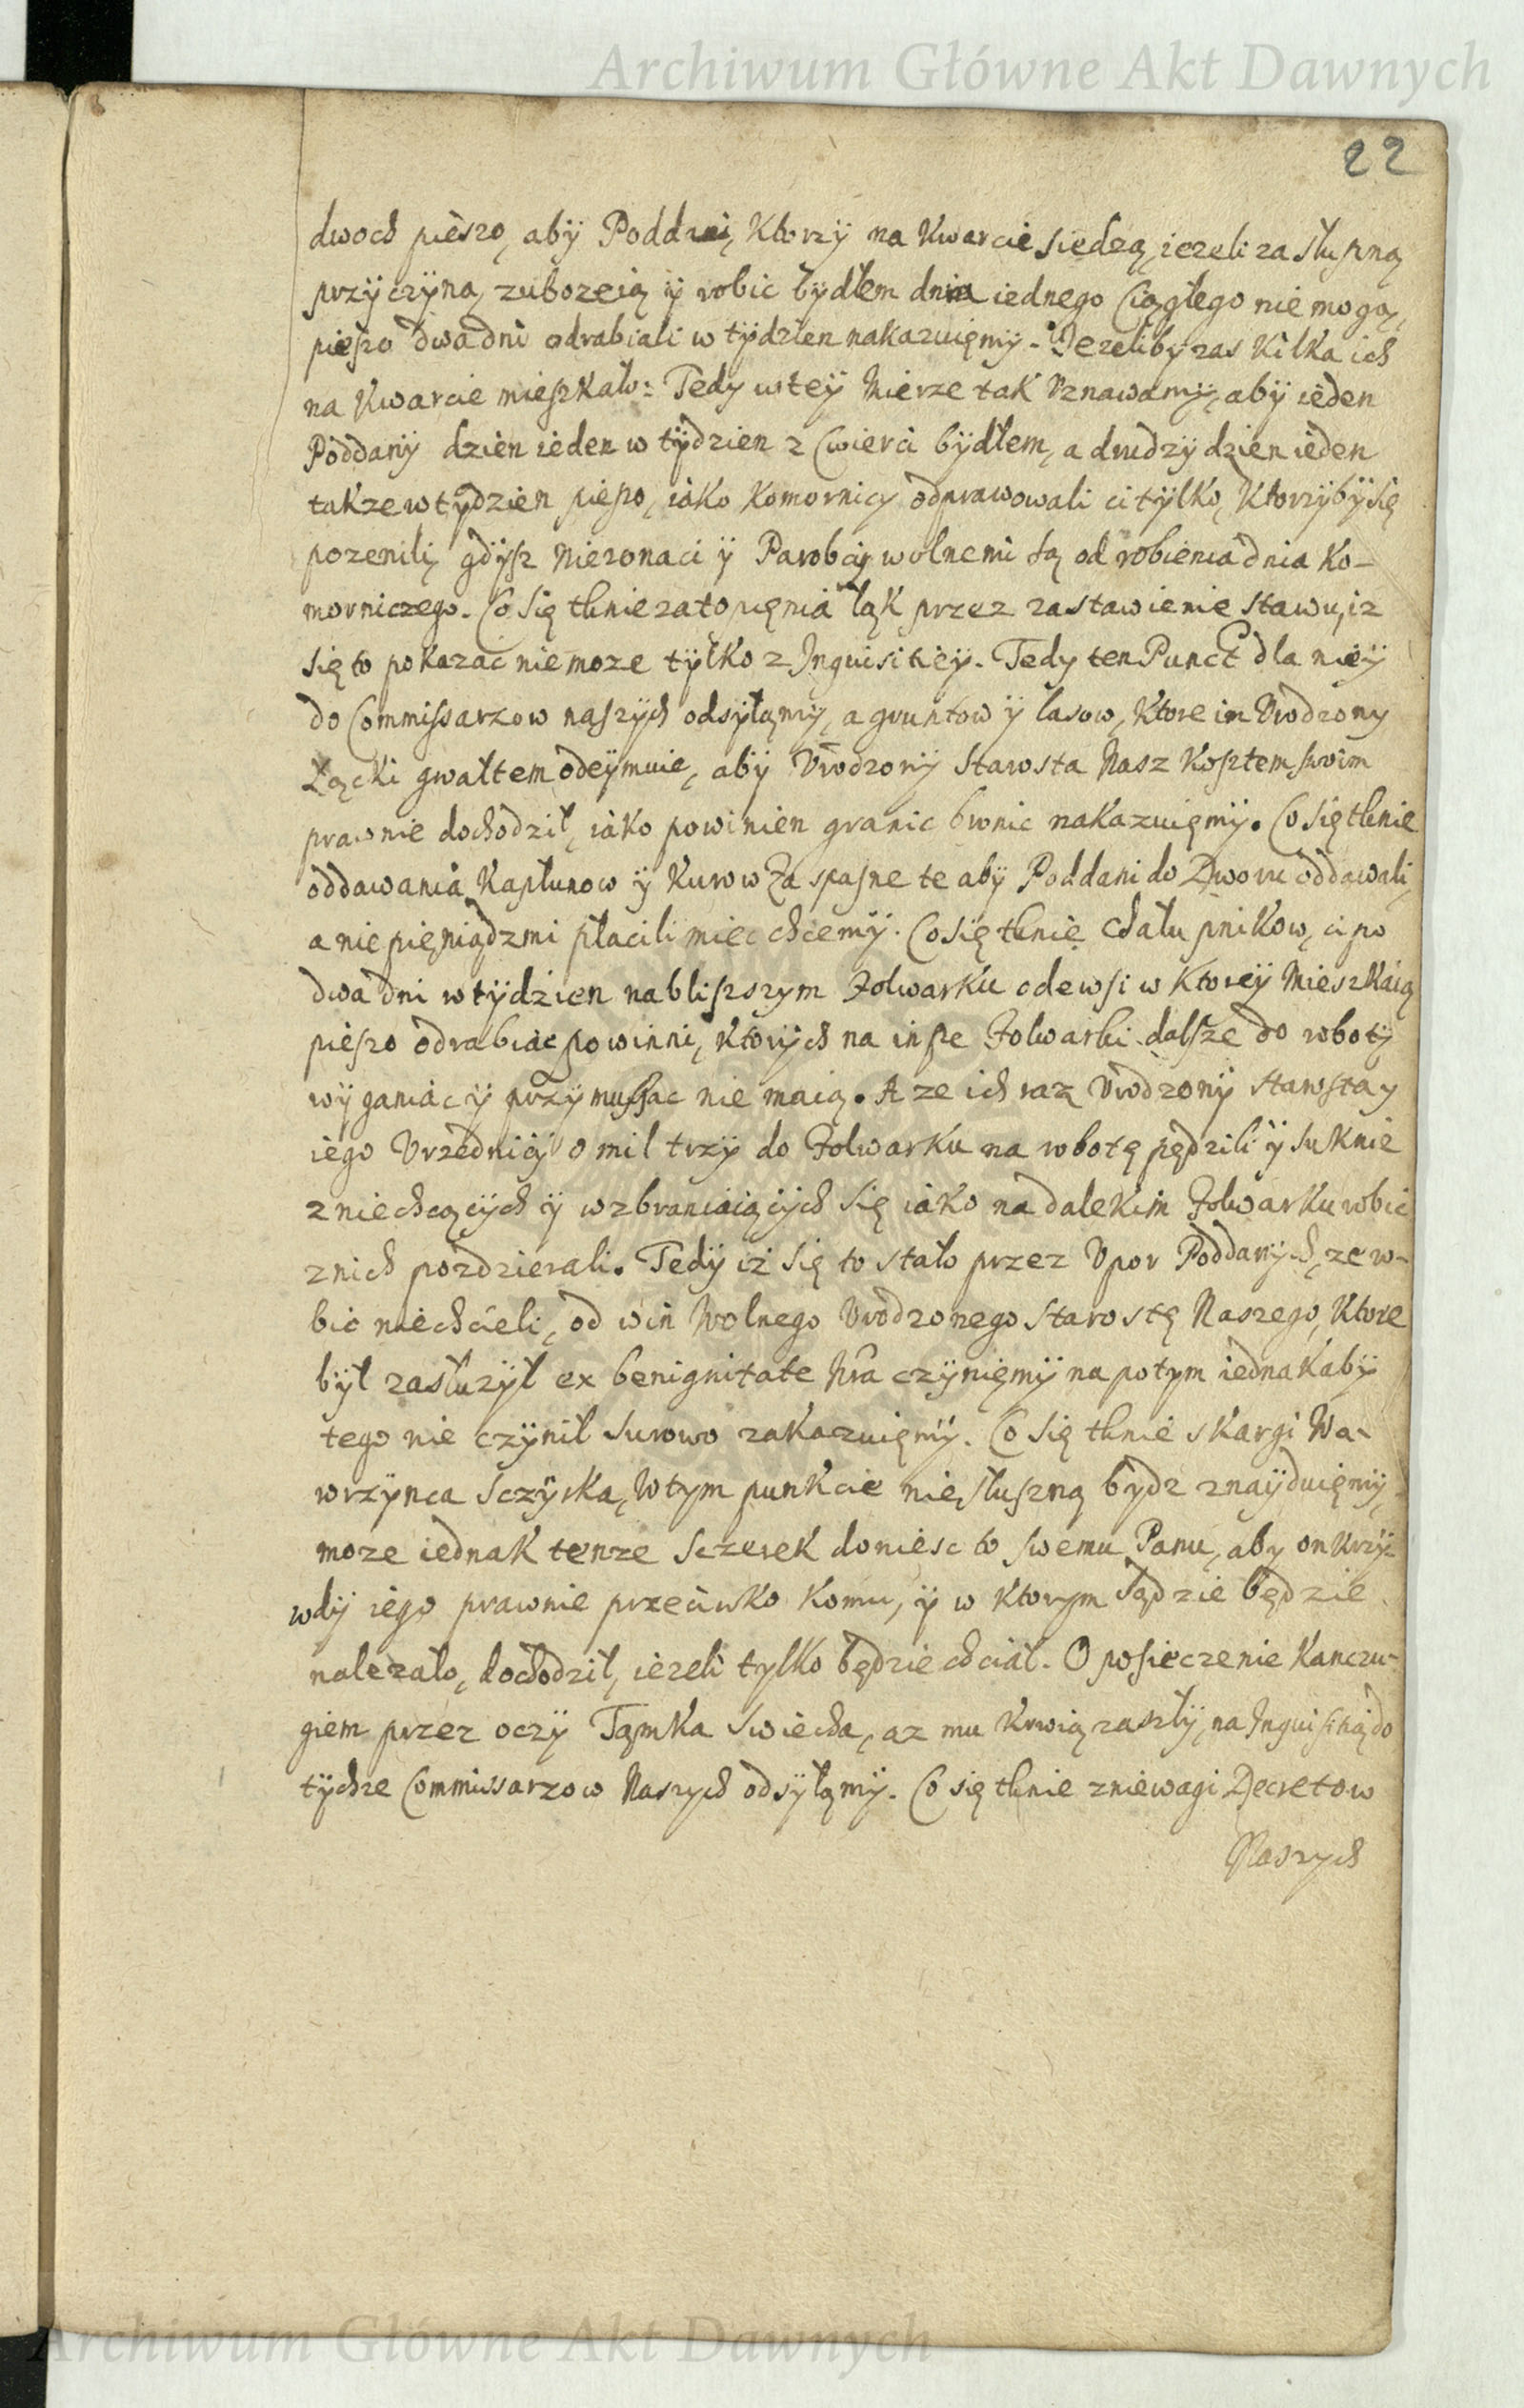 Archiwum Główne Akt Dawnych
22
dwoch pieszo, aby Poddani, Ktorzy na Kwarcie siedzą, iezeli za słuszną
przyczyną, zubozeią y robic bydłem dnia iednego Ciągłego nie mogą,
pieszo dwa dni odrabiali w tydzien nakazuięmy. Jezeliby zas Kilka ich
na Kwarcie mieszkało: Tedy w tey Mierze tak Vznawamy, aby ieden
Poddany dzien ieden w tydzien z Cwierci bydłem, a drudzy dzien ieden
takze w tydzien pieszo, iako Komornicy odprawowali ci tylko, Ktorzyby się
pozenili, gdysz Niezonaci y Parobcy wolnemi są od robienia dnia Ko-
morniczego. Co Się tknie zatopięnia łąk przez zastawienie stawu, iz
się to pokazac nie moze tylko z Inquisitiey. Tedy ten Punct dla niey
do Commissarzow naszych odsyłąmy, a gruntow y lasow, Ktore im Vrodzony
Łącki gwałtem odeymuie, aby Vrodzony Starosta Nasz Kosztem swoim
prawnie dochodził, iako powinien granic bronic nakazuięmy. Co się tknie
oddawania Kapłunow y Kurow Za spasne te aby Poddani do Dworu oddawali,
a nie pięniądzmi płacili miec chcemy. Co się tknie chałupnikow, ci po
dwa dni w tydzien nabliszszym Folwarku odewsi w Ktorey Mieszkaią
pieszo odrabiac powinni, Ktorych na insze Folwarki dalsze do roboty
wyganiac y przymuszac nie maią. A ze ich raz Vrodzony Starosta y
iego Vrzednicy o mil trzy do Folwarku na robotę pędzili y suknie
z niechcących y wzbraniaiących się iako na dalekim Folwarku robic
z nich pozdzierali. Tedy iz się to stało przez Vpor Poddanych, ze ro-
bic niechcieli, od win Wolnego Vrodzonego Starostę Naszego, Ktore
był zasłuzył ex benignitate Nra czynięmy na potym iednak aby
tego nie czynił surowo zakazuięmy. Co Się tknie skargi Wa-
wrzynca Sczyrka, W tym punkcie niesłuszną bydz znayduięmy,
moze iednak tenze Sczerek doniesc to swemu Panu, aby on krzy-
wdy iego prawnie przeciwko Komu, y w Ktorym Sądzie będzie
nalezało, dochodził, iezeli tylko będzie chciał. O posieczenie Kanczu-
giem przez oczy Tąmka Swiecha, az mu krwią zaszły, na Inquisitią do
tychze Commissarzow Naszych odsyłąmy. Co się tknie zniewagi Decretow
Naszych
Archiwum Główne Akt Dawnych